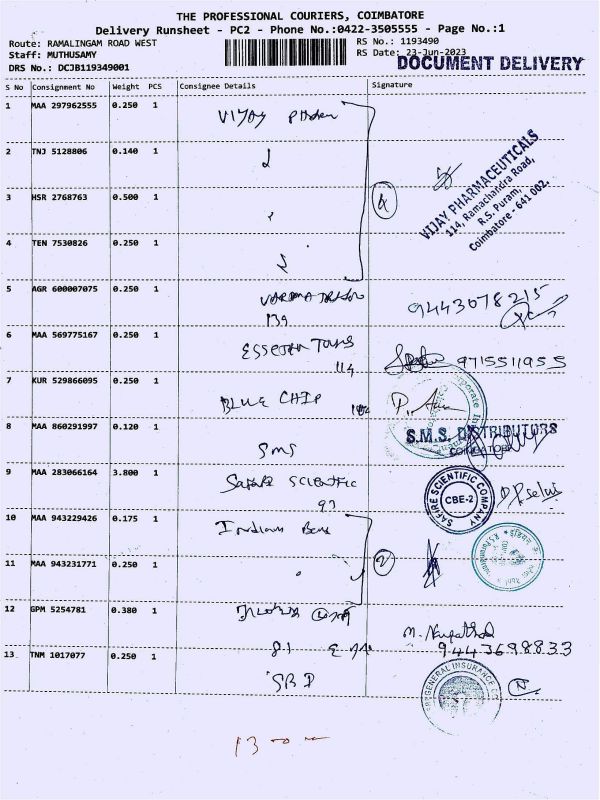 THE PROFESSIONAL COURIERS, COIMBATORE
Delivery Runsheet - PC2 - Phone No.:0422-3505555 - Page No.:1
Route: RAMALINGAM ROAD WEST
RS No.: 1193490
Staff: MUTHUSAMY
RS Date: 23-Jun-2023
DRS No.: DCJB119349001
DOCUMENT DELIVERY
S No Consignment No Weight PCS Consignee Details Signature
1 MAA 297962555 0.250 1 Vijay
2 TNJ 5128806 0.140 1
3 HSR 2768763 0.500 1
4 TEN 7530826 0.250 1
4
VIJAY PHARMACEUTICALS
114, Ramachandra Road,
R.S. Puram,
Coimbatore - 641 002.
5 AGR 600007075 0.250 1 9443078215
139
6 MAA 569775167 0.250 1 Tours 9715511955
114
7 KUR 529866095 0.250 1 BLUE CHIP
8 MAA 860291997 0.120 1 SMS
S.M.S. DISTRIBUTORS
COIMBATORE
9 MAA 283066164 3.800 1 SCIENTIFIC
97
SAFIRE SCIENTIFIC COMPANY
CBE-2
10 MAA 943229426 0.175 1 Indian Bank
11 MAA 943231771 0.250 1
2
12 GPM 5254781 0.380 1
9443698833
13 TNM 1017077 0.250 1 SBI
GENERAL INSURANCE
13